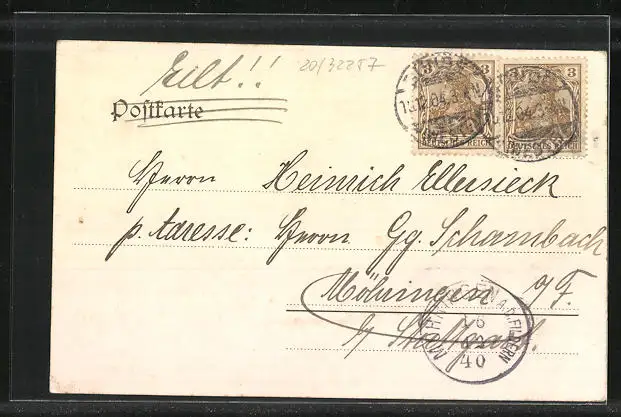 Eilt!! 20/32257
3 3 3 3
DEUTSCHES REICH DEUTSCHES REICH
Postkarte
Herrn Heinrich Ellersieck
p. Adresse: Herrn Gg. Schambach
Möhringen a/F.
b/ Stuttgart.
MÖHRINGEN A.D.FILDERN
40